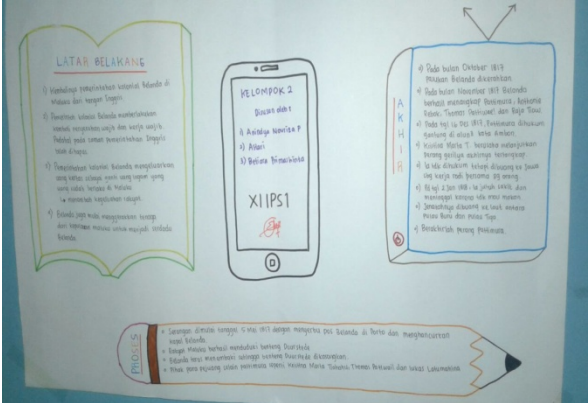 LATAR BELAKANG
1) Kembalinya pemerintahan kolonial Belanda di
Maluku dari tangan Inggris
2) Pemerintah kolonial Belanda memberlakukan
kembali penyerahan wajib dan kerja wajib.
Padahal pada zaman pemerintahan Inggris
telah dihapus.
3) Pemerintahan kolonial Belanda mengeluarkan
uang kertas sebagai ganti uang logam yang
yang sudah berlaku di Maluku
↳ menambah kegelisahan rakyat.
4) Belanda juga mulai mengerahkan tenaga
dari Maluku untuk menjadi serdadu
Belanda.
KELOMPOK 2
Disusun oleh:
1) P
2) Astari
3)
XI IPS 1
AKHIR
Pada bulan Oktober 1817
pasukan Belanda dikerahkan
Pada bulan November 1817 Belanda
berhasil menangkap Pattimura, Anthonie
Rebok, Thomas Pattiwael dan Raja Tiow
Pada tgl 16 Des 1817, Pattimura dihukum
gantung di Kota Ambon.
Kristina Martha T. berusaha melanjutkan
perang gerilya akhirnya tertangkap.
Ia tdk dihukum tetapi dibuang ke Jawa
sbg kerja rodi bersama org
Pd tgl 2 Jan 1818 - ia jatuh sakit dan
meninggal karena tdk mau makan.
Jenazahnya dibuang ke laut antara
Pulau Buru dan Pulau Tiga
Berakhirlah perang Pattimura.
PROSES
Serangan dimulai tanggal 15 Mei 1817 dengan menyerbu pos Belanda di Porto dan menghancurkan
kapal Belanda.
Rakyat Maluku berhasil menduduki benteng Duurstede
Belanda terus menambah sehingga benteng Duurstede
Pihak para pejuang selain Pattimura seperti Kristina Martha Tiahahu, Thomas Pattiwael dan Lukas Latumahina.